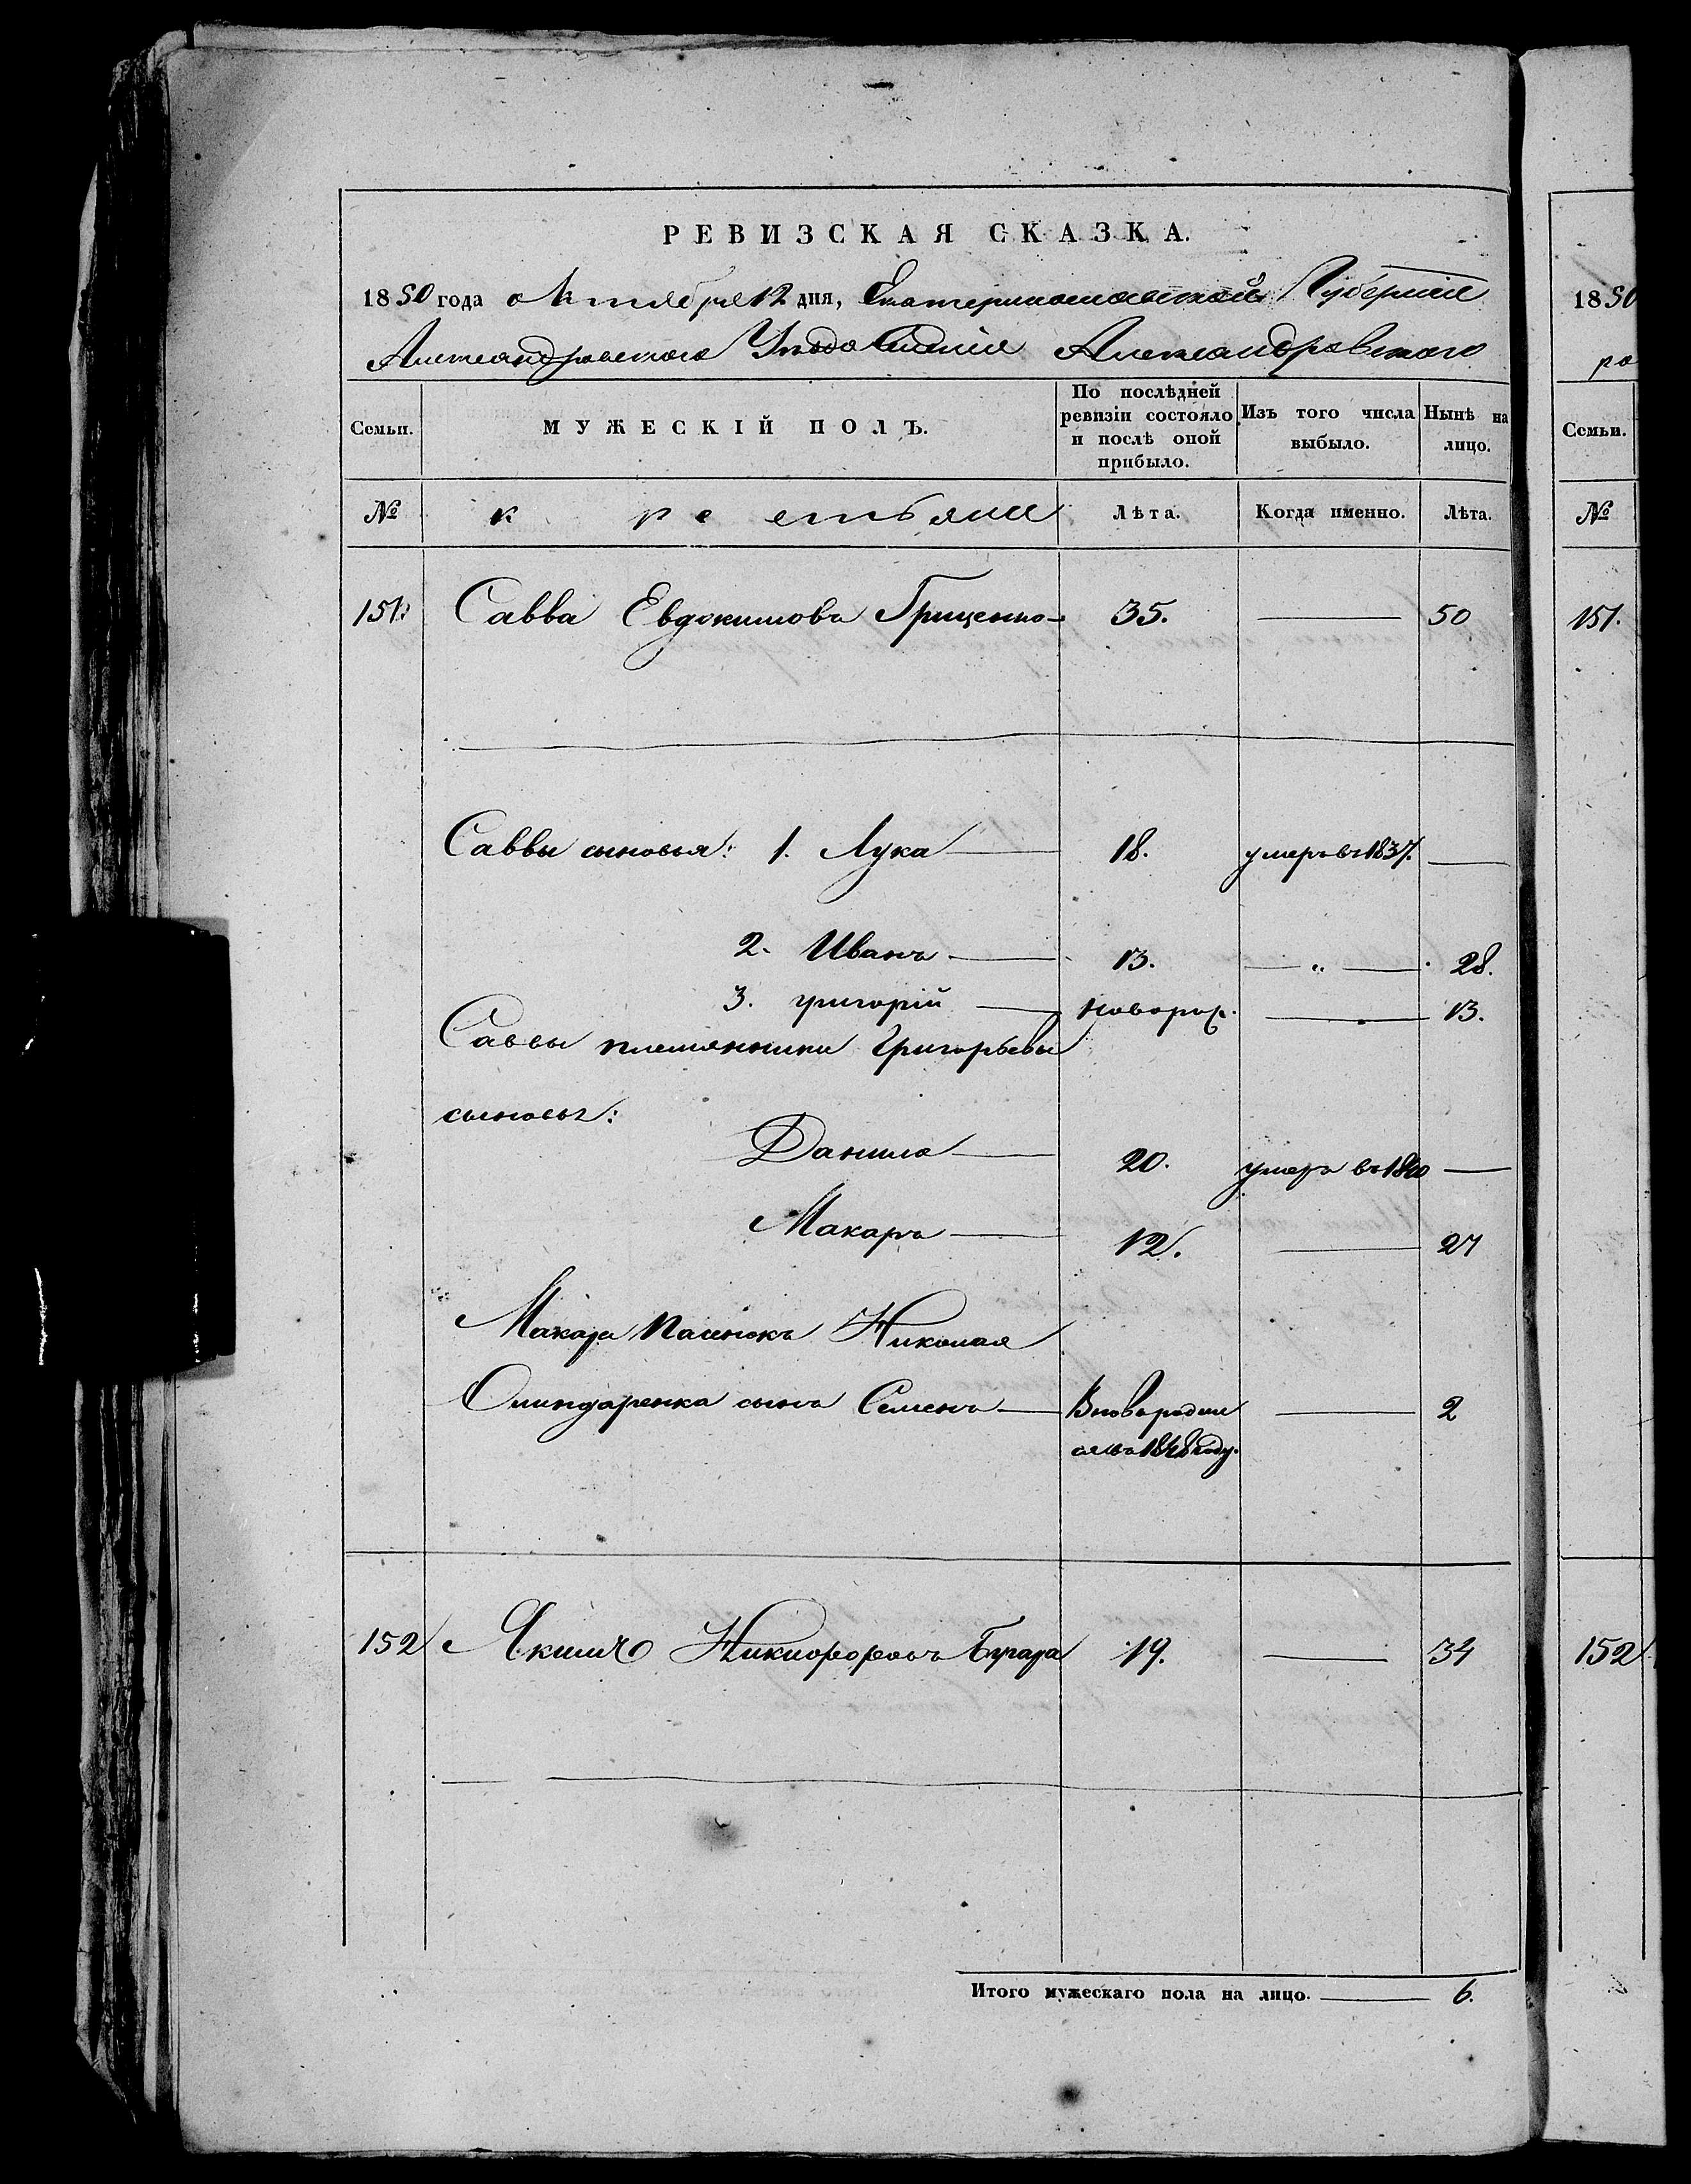 РЕВИЗСКАЯ СКАЗКА.
1850 года октября 12 дня, Екатеринославской Губернии
Александровского Уезда Александровского
Семьи. МУЖЕСКІЙ ПОЛЪ. По послѣдней ревизіи состояло и послѣ оной прибыло. Изъ того числа выбыло. Нынѣ на лицо.
№ крестьяне Лѣта. Когда именно. Лѣта.
151 Савва Евдокимовъ Гриценко 35. — 50
Саввы сыновья: 1. Лука — 18. умеръ въ 1837. —
2. Иванъ — 13. — „ — 28.
3. григорій — новорож. — 13.
Саввы племянники Григорьевы
сыновья:
Данило — 20. умеръ въ 1840 —
Макаръ — 12. — 27
Макара пасынокъ Николая
сынъ Семенъ — Вновь родил
ся въ 1848 году. — 2
152 Якимъ Никифоровъ 19. — 34
Итого мужескаго пола на лицо. — 6.
1850
ро
Семьи.
№
151.
152